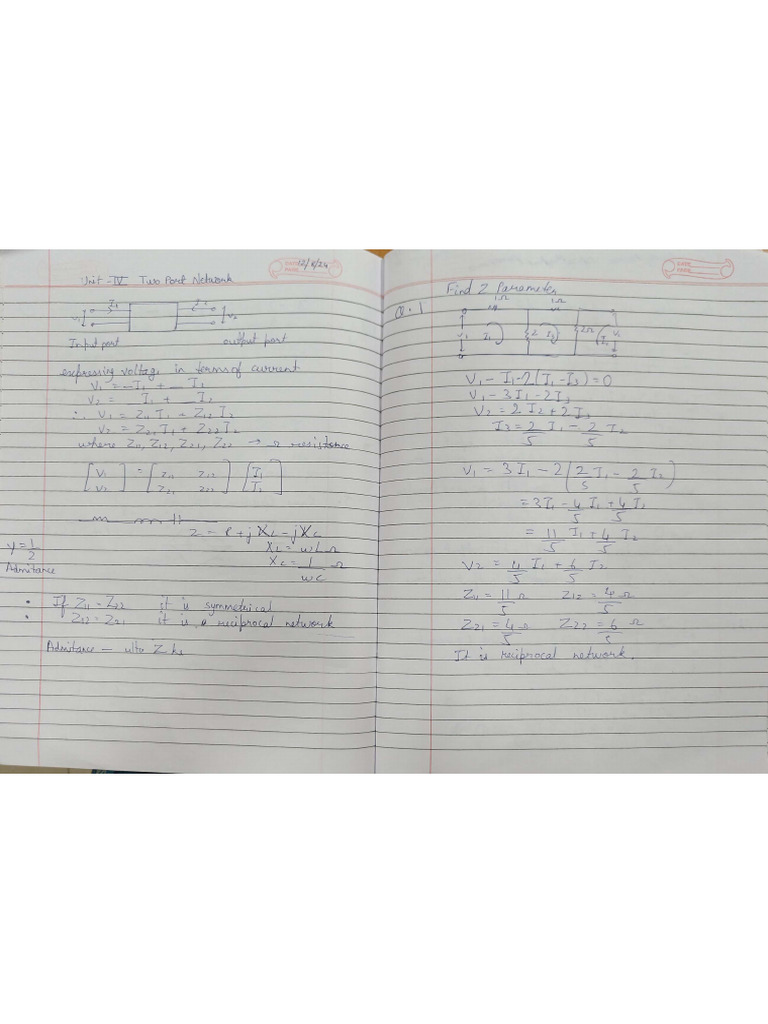 12/6/24
Unit-IV Two Port Network
I1 I2
V1 V2
Input port output port
expressing voltage in terms of current
V1 = _I1 + __ I2
V2 = __ I1 + __ I2
∴ V1 = Z11 I1 + Z12 I2
V2 = Z21 I1 + Z22 I2
where Z11, Z12, Z21, Z22 → Ω resistance
[V1 V2] = [Z11 Z12 Z21 Z22] [I1 I2]
Z = R + jXL - jXC
XL = ωL Ω
XC = 1/ωC Ω
Y = 1/Z
Admitance
• If Z11 = Z22 it is symmetrical
• Z12 = Z21 it is a reciprocal network
Admitance - ulta Z ka
Find Z Parameter
Q.1
1Ω 1Ω
V1 I1 2 I3 2Ω I2 V2
V1 - I1 - 2(I1 - I3) = 0
V1 - 3I1 - 2I3
V2 = 2I2 + 2I3
I3 = 2/5 I1 - 2/5 I2
V1 = 3I1 - 2(2/5 I1 - 2/5 I2)
= 3I1 - 4/5 I1 + 4/5 I2
= 11/5 I1 + 4/5 I2
V2 = 4/5 I1 + 6/5 I2
Z11 = 11/5 Ω Z12 = 4/5 Ω
Z21 = 4/5 Ω Z22 = 6/5 Ω
It is reciprocal network.